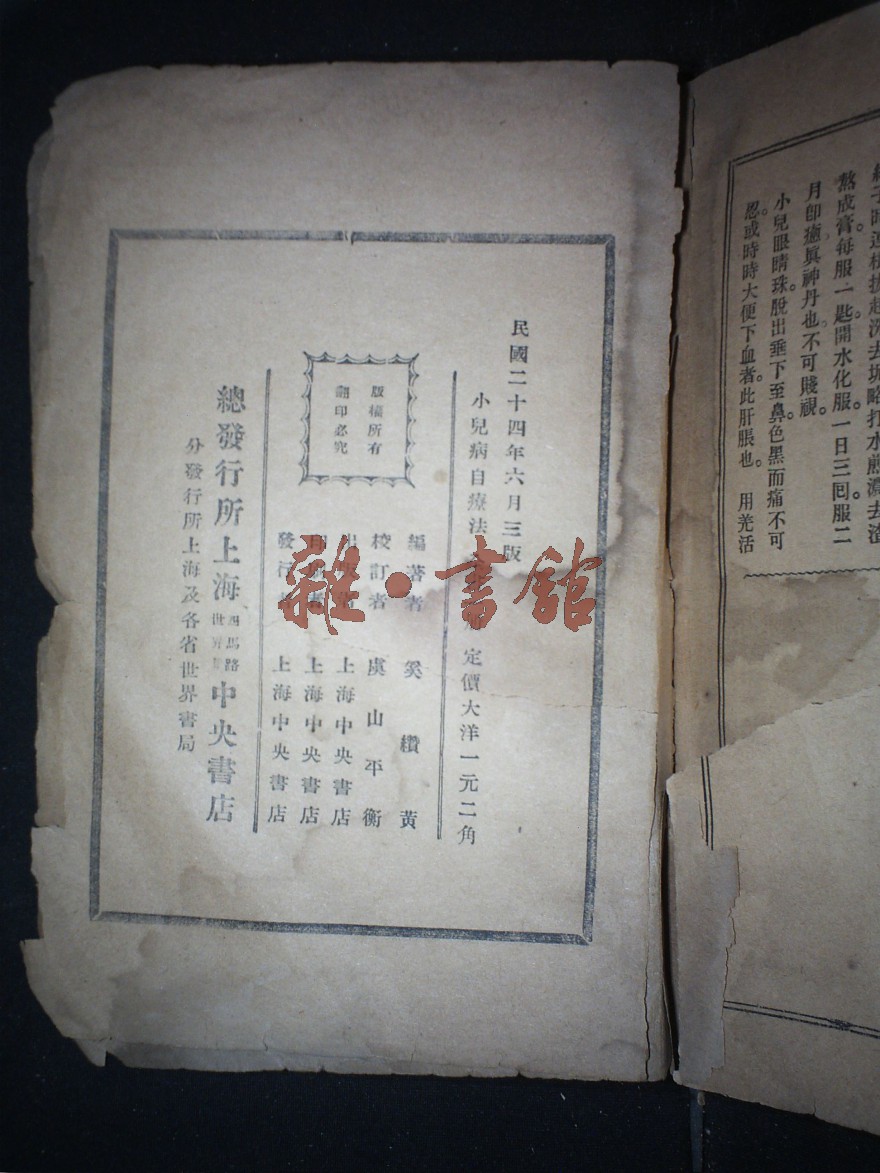 緜子時連根拔起深去坭略打水煎濃去渣
熬成膏每服一匙。開水化服一日三囘。服二
月卽癒眞神丹也。不可賤視。
小兒眼睛珠脫出垂下至鼻。色黑而痛不可
忍。或時時大便下血者。此肝脹也。用羌活
民國二十四年六月三版
小兒病自療法 定價大洋一元二角
版權所有
翻印必究
編著者 奚纘黃
校訂者 虞山平衡
上海中央書店
上海中央書店
發行者 上海中央書店
總發行所上海四馬路世界里中央書店
分發行所上海及各省世界書局
雜·書館